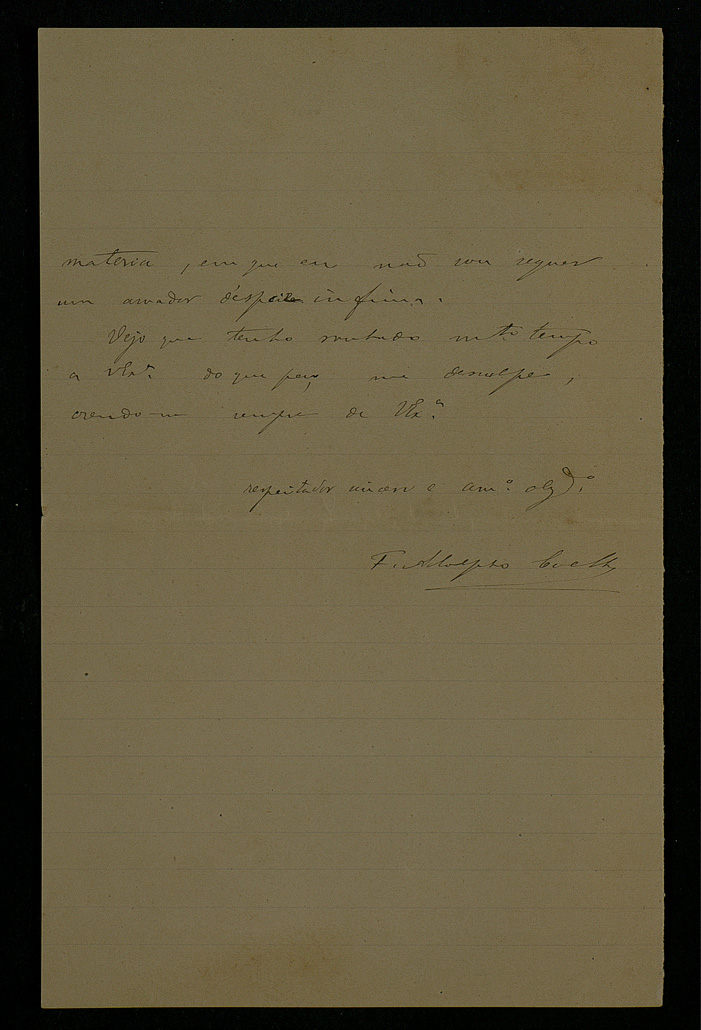 materia, em que eu não sou sequer
um amador d'especie infima.
Vejo que tenho roubado mto tempo
a VExª. do que peço me desculpe,
crendo-me sempre de VExª.
respeitador sincero e amº. obgdº.
F. Adolpho Coelho